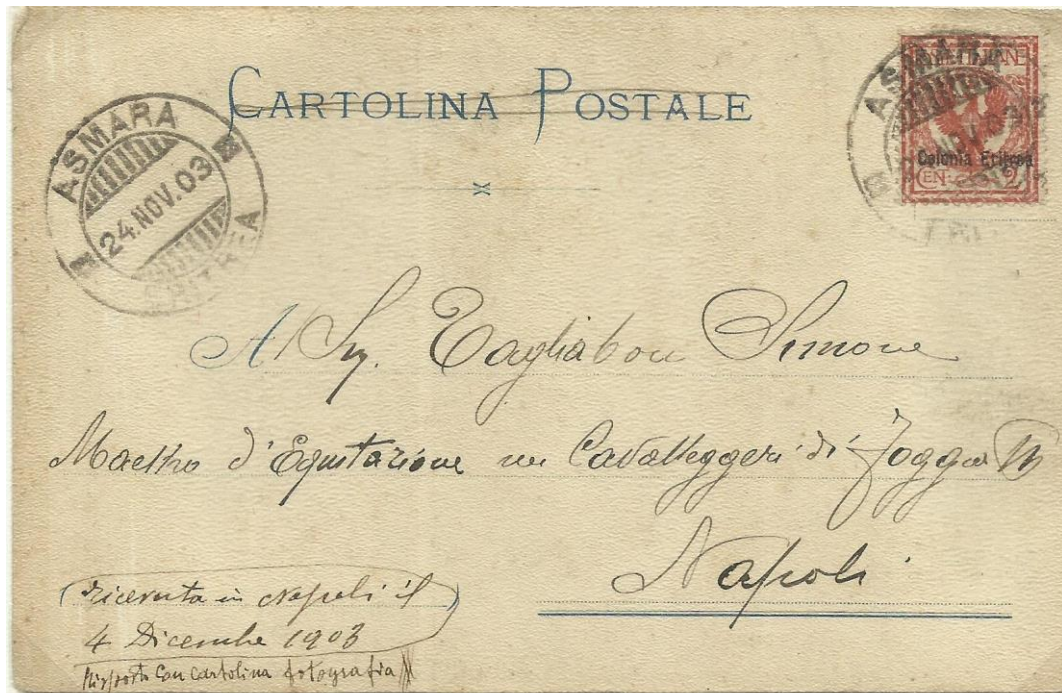 CARTOLINA POSTALE
ASMARA
24.NOV.03
ERITREA
ASMARA
POSTE ITALIANE
Colonia Eritrea
CENT. 2
Al Sig. Tagliabue Simone
Maestro d'Equitazione nei Cavalleggeri di Foggia
Napoli
ricevuta in Napoli il
4 Dicembre 1903
Risposto con cartolina fotografia